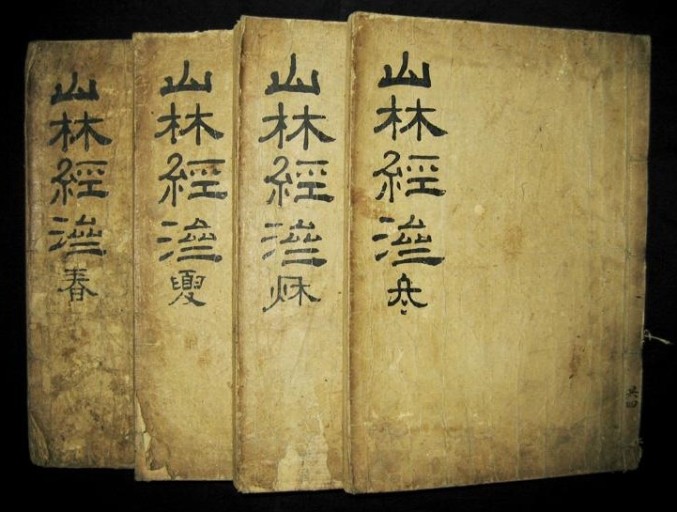 山林經濟春
山林經濟夏
山林經濟秋
山林經濟冬
共四